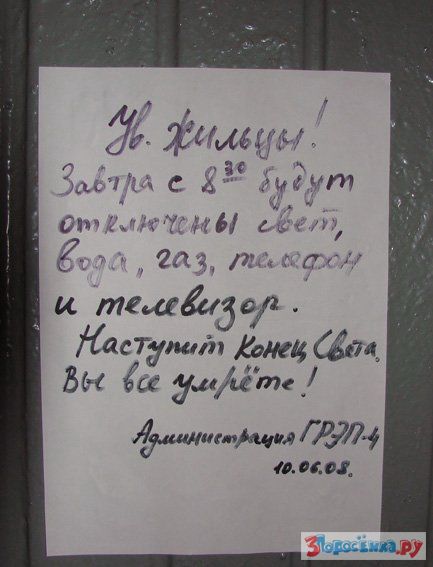 Ув. Жильцы!
Завтра с 8 30 будут
отключены свет,
вода, газ, телефон
и телевизор.
Наступит Конец Света.
Вы все умрёте!
Администрация ГРЭП-4
10.06.08.
3Поросёнка.ру